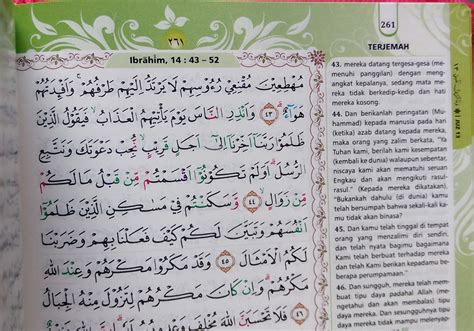 ٢٦١
Ibrāhīm, 14 : 43 – 52
مُهْطِعِينَ مُقْنِعِي رُءُوسِهِمْ لَا يَرْتَدُّ إِلَيْهِمْ طَرْفُهُمْ ۖ وَأَفْئِدَتُهُمْ
هَوَاءٌ ٤٣ وَأَنْذِرِ النَّاسَ يَوْمَ يَأْتِيهِمُ الْعَذَابُ فَيَقُولُ الَّذِينَ
ظَلَمُوا رَبَّنَا أَخِّرْنَا إِلَىٰ أَجَلٍ قَرِيبٍ نُجِبْ دَعْوَتَكَ وَنَتَّبِعِ
الرُّسُلَ ۗ أَوَلَمْ تَكُونُوا أَقْسَمْتُمْ مِنْ قَبْلُ مَا لَكُمْ
مِنْ زَوَالٍ ٤٤ وَسَكَنْتُمْ فِي مَسَاكِنِ الَّذِينَ ظَلَمُوا
أَنْفُسَهُمْ وَتَبَيَّنَ لَكُمْ كَيْفَ فَعَلْنَا بِهِمْ وَضَرَبْنَا
لَكُمُ الْأَمْثَالَ ٤٥ وَقَدْ مَكَرُوا مَكْرَهُمْ وَعِنْدَ اللَّهِ
مَكْرُهُمْ ۖ وَإِنْ كَانَ مَكْرُهُمْ لِتَزُولَ مِنْهُ الْجِبَالُ
٤٦ فَلَا تَحْسَبَنَّ اللَّهَ مُخْلِفَ وَعْدِهِ
261
TERJEMAH
43. mereka datang tergesa-gesa (me-
menuhi panggilan) dengan meng-
angkat kepalanya, sedang mata me-
reka tidak berkedip-kedip dan hati
mereka kosong.
44. Dan berikanlah peringatan (Mu-
hammad) kepada manusia pada hari
(ketika) azab datang kepada mereka,
maka orang yang zalim berkata, "Ya
Tuhan kami, berilah kami kesempatan
(kembali ke dunia) walaupun sebentar,
niscaya kami akan mematuhi seruan
Engkau dan akan mengikuti rasul-
rasul." (Kepada mereka dikatakan),
"Bukankah dahulu (di dunia) kamu
telah bersumpah bahwa sekali-kali ka-
mu tidak akan binasa?
45. Dan kamu telah tinggal di tempat
orang yang menzalimi diri sendiri,
dan telah nyata bagimu bagaimana
Kami telah berbuat terhadap mereka
dan telah Kami berikan kepadamu be-
berapa perumpamaan."
46. Dan sungguh, mereka telah mem-
buat tipu daya padahal Allah (menge-
tahui dan akan membalas) tipu daya
mereka. Dan sesungguhnya tipu daya
mereka tidak mampu melenyap-